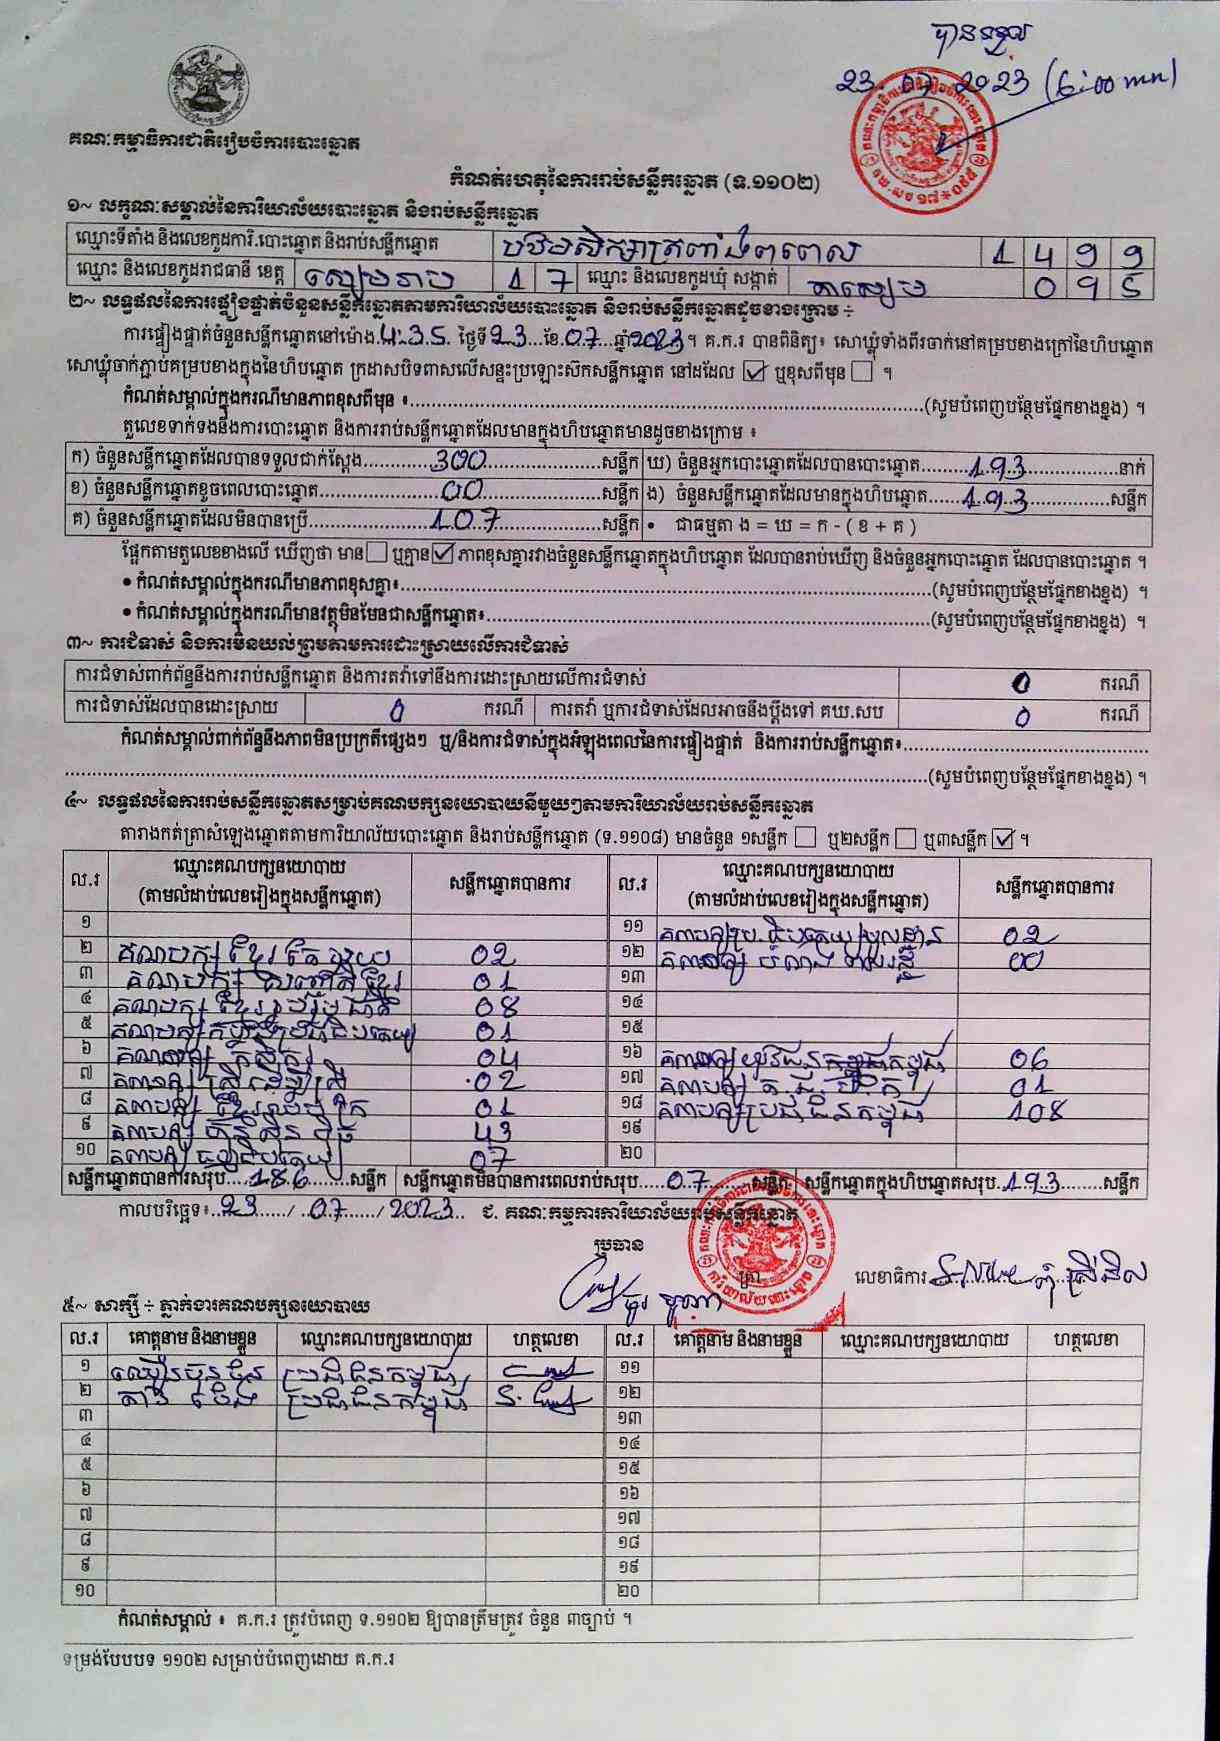 បានទទួល
23.07.2023 (6:00 mn)
គណៈកម្មាធិការជាតិរៀបចំការបោះឆ្នោត
កំណត់ហេតុនៃការរាប់សន្លឹកឆ្នោត (ទ.១១០២)
១~ លក្ខណៈសម្គាល់នៃការិយាល័យបោះឆ្នោត និងរាប់សន្លឹកឆ្នោត
ឈ្មោះទីតាំង និងលេខកូដការិ.បោះឆ្នោត និងរាប់សន្លឹកឆ្នោត បឋមសិក្សាត្រពាំងពពេល 1 4 9 9
ឈ្មោះ និងលេខកូដរាជធានី ខេត្ត សៀមរាប 1 7 ឈ្មោះ និងលេខកូដឃុំ សង្កាត់ តាសៀម 0 9 5
២~ លទ្ធផលនៃការផ្ទៀងផ្ទាត់ចំនួនសន្លឹកឆ្នោតតាមការិយាល័យបោះឆ្នោត និងរាប់សន្លឹកឆ្នោតដូចខាងក្រោម ÷
ការផ្ទៀងផ្ទាត់ចំនួនសន្លឹកឆ្នោតនៅម៉ោង 4:35 ថ្ងៃទី 23 ខែ 07 ឆ្នាំ 2023 ។ គ.ក.រ បានពិនិត្យ៖ សោឃ្លុំទាំងពីរចាក់នៅគម្របខាងក្រៅនៃហិបឆ្នោត
សោឃ្លុំចាក់ភ្ជាប់គម្របខាងក្នុងនៃហិបឆ្នោត ក្រដាសបិទពាសលើសន្ទះប្រឡោះស៊កសន្លឹកឆ្នោត នៅដដែល ☑ ឬខុសពីមុន ☐ ។
កំណត់សម្គាល់ក្នុងករណីមានភាពខុសពីមុន ៖..........(សូមបំពេញបន្ថែមផ្នែកខាងខ្នង) ។
តួលេខទាក់ទងនឹងការបោះឆ្នោត និងការរាប់សន្លឹកឆ្នោតដែលមានក្នុងហិបឆ្នោតមានដូចខាងក្រោម ៖
ក) ចំនួនសន្លឹកឆ្នោតដែលបានទទួលជាក់ស្ដែង 300 សន្លឹក ឃ) ចំនួនអ្នកបោះឆ្នោតដែលបានបោះឆ្នោត 193 នាក់
ខ) ចំនួនសន្លឹកឆ្នោតខូចពេលបោះឆ្នោត 00 សន្លឹក ង) ចំនួនសន្លឹកឆ្នោតដែលមានក្នុងហិបឆ្នោត 193 សន្លឹក
គ) ចំនួនសន្លឹកឆ្នោតដែលមិនបានប្រើ 107 សន្លឹក • ជាធម្មតា ង = ឃ = ក - ( ខ + គ )
ផ្អែកតាមតួលេខខាងលើ ឃើញថា មាន ☐ ឬគ្មាន ☑ ភាពខុសគ្នារវាងចំនួនសន្លឹកឆ្នោតក្នុងហិបឆ្នោត ដែលបានរាប់ឃើញ និងចំនួនអ្នកបោះឆ្នោត ដែលបានបោះឆ្នោត ។
• កំណត់សម្គាល់ក្នុងករណីមានភាពខុសគ្នា៖..........(សូមបំពេញបន្ថែមផ្នែកខាងខ្នង) ។
• កំណត់សម្គាល់ក្នុងករណីមានវត្ថុមិនមែនជាសន្លឹកឆ្នោត៖..........(សូមបំពេញបន្ថែមផ្នែកខាងខ្នង) ។
៣~ ការជំទាស់ និងការមិនយល់ព្រមតាមការដោះស្រាយលើការជំទាស់
ការជំទាស់ពាក់ព័ន្ធនឹងការរាប់សន្លឹកឆ្នោត និងការតវ៉ាទៅនឹងការដោះស្រាយលើការជំទាស់ 0 ករណី
ការជំទាស់ដែលបានដោះស្រាយ 0 ករណី ការតវ៉ា ឬការជំទាស់ដែលអាចនឹងប្ដឹងទៅ គឃ.សប 0 ករណី
កំណត់សម្គាល់ពាក់ព័ន្ធនឹងភាពមិនប្រក្រតីផ្សេងៗ ឬ/និងការជំទាស់ក្នុងអំឡុងពេលនៃការផ្ទៀងផ្ទាត់ និងការរាប់សន្លឹកឆ្នោត៖..........
..........(សូមបំពេញបន្ថែមផ្នែកខាងខ្នង) ។
៤~ លទ្ធផលនៃការរាប់សន្លឹកឆ្នោតសម្រាប់គណបក្សនយោបាយនីមួយៗតាមការិយាល័យរាប់សន្លឹកឆ្នោត
តារាងកត់ត្រាសំឡេងឆ្នោតតាមការិយាល័យបោះឆ្នោត និងរាប់សន្លឹកឆ្នោត (ទ.១១០៨) មានចំនួន ១សន្លឹក ☐ ឬ២សន្លឹក ☐ ឬ៣សន្លឹក ☑ ។
ល.រ ឈ្មោះគណបក្សនយោបាយ (តាមលំដាប់លេខរៀងក្នុងសន្លឹកឆ្នោត) សន្លឹកឆ្នោតបានការ ល.រ ឈ្មោះគណបក្សនយោបាយ (តាមលំដាប់លេខរៀងក្នុងសន្លឹកឆ្នោត) សន្លឹកឆ្នោតបានការ
១ ១១ គណបក្សប្រ.ជិបតេយ្យមូលដ្ឋាន 02
២ គណបក្ស ខ្មែរ តែ មួយ 02 ១២ គណបក្ស បំណាង ពលរដ្ឋ 00
៣ គណបក្ស សញ្ជាតិខ្មែរ 01 ១៣
៤ គណបក្ស ខ្មែររួបរួមជាតិ 08 ១៤
៥ គណបក្សកម្លាំងប្រជាធិបតេយ្យ 01 ១៥
៦ គណបក្ស កសិករ 04 ១៦ គណបក្សយុវជនកម្ពុជា 06
៧ គណបក្ស ស្រ្តីដើម្បីស្រ្តី 02 ១៧ គណបក្ស 01
៨ គណបក្ស ខ្មែរ 01 ១៨ គណបក្សប្រជាជនកម្ពុជា 108
៩ គណបក្ស ហ៊្វុនស៊ិនប៉ិច 43 ១៩
១០ គណបក្ស ធម្មាធិបតេយ្យ 07 ២០
សន្លឹកឆ្នោតបានការសរុប 186 សន្លឹក សន្លឹកឆ្នោតមិនបានការពេលរាប់សរុប 07 សន្លឹក សន្លឹកឆ្នោតក្នុងហិបឆ្នោតសរុប 193 សន្លឹក
កាលបរិច្ឆេទ៖ 23 / 07 / 2023 ជ. គណៈកម្មការការិយាល័យរាប់សន្លឹកឆ្នោត
ប្រធាន ត្រា លេខាធិការ
៥~ សាក្សី ÷ ភ្នាក់ងារគណបក្សនយោបាយ
ល.រ គោត្តនាម និងនាមខ្លួន ឈ្មោះគណបក្សនយោបាយ ហត្ថលេខា ល.រ គោត្តនាម និងនាមខ្លួន ឈ្មោះគណបក្សនយោបាយ ហត្ថលេខា
១ ប្រជាជនកម្ពុជា ១១
២ ប្រជាជនកម្ពុជា ១២
៣ ១៣
៤ ១៤
៥ ១៥
៦ ១៦
៧ ១៧
៨ ១៨
៩ ១៩
១០ ២០
កំណត់សម្គាល់ ៖ គ.ក.រ ត្រូវបំពេញ ទ.១១០២ ឱ្យបានត្រឹមត្រូវ ចំនួន ៣ច្បាប់ ។
ទម្រង់បែបបទ ១១០២ សម្រាប់បំពេញដោយ គ.ក.រ